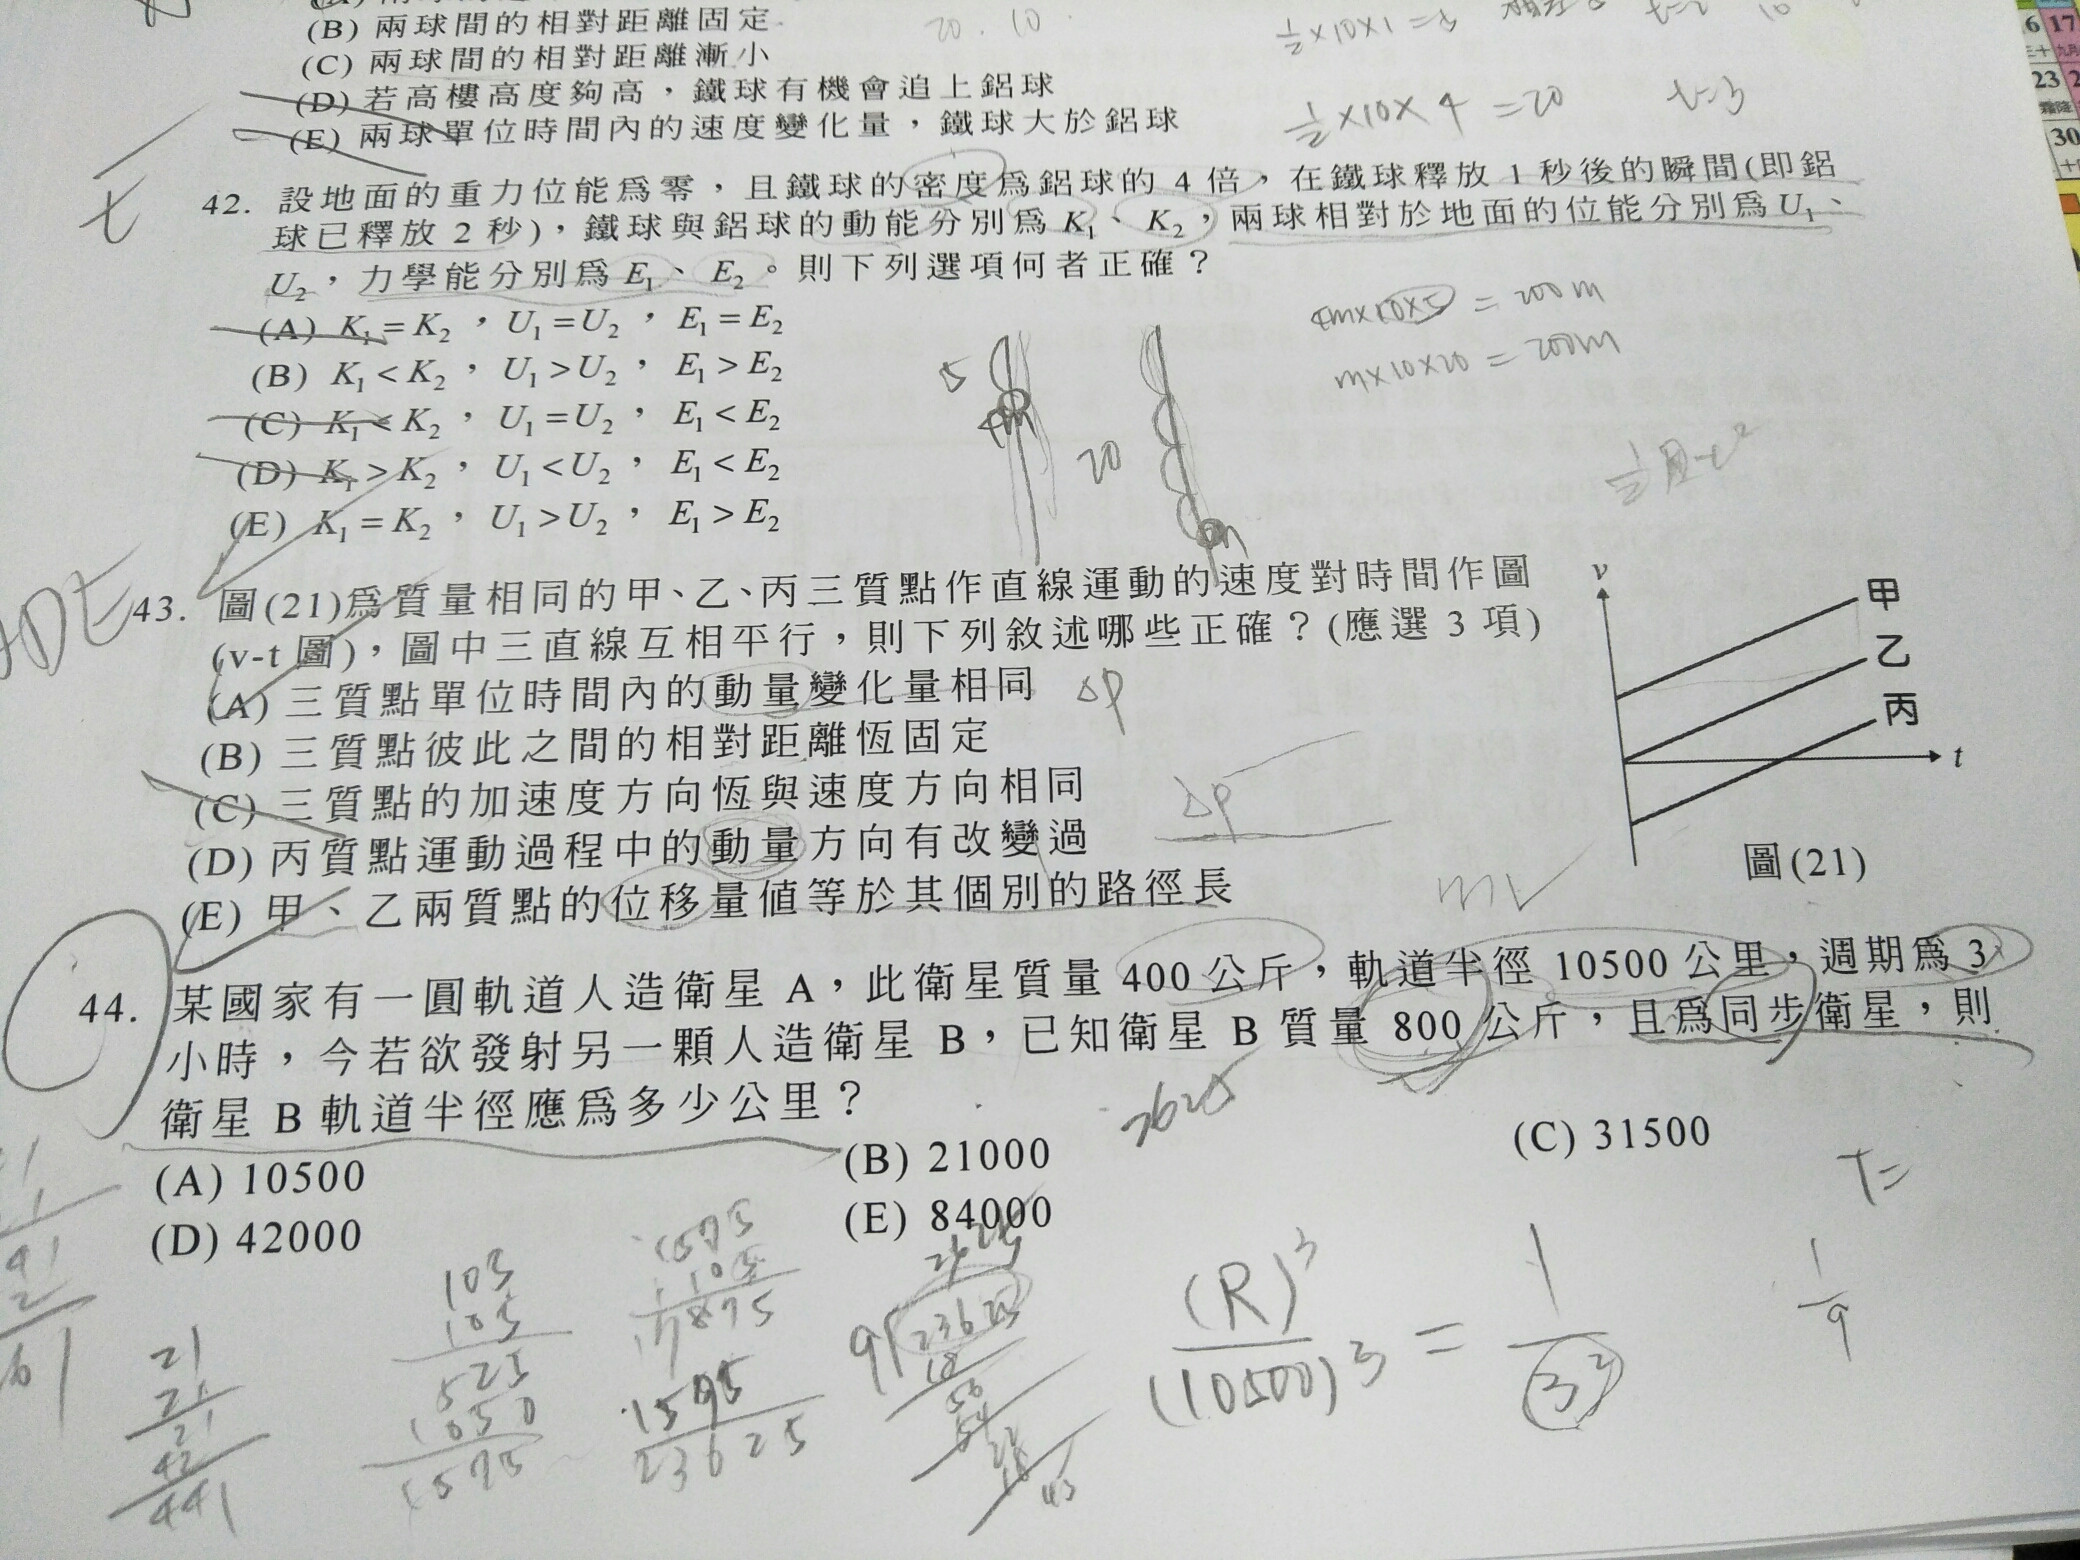 (B) 兩球間的相對距離固定
20. 10
½×10×1=5
(C) 兩球間的相對距離漸小
(D) 若高樓高度夠高，鐵球有機會追上鋁球
½×10×4=20
t=3
(E) 兩球單位時間內的速度變化量，鐵球大於鋁球
42. 設地面的重力位能為零，且鐵球的密度為鋁球的 4 倍，在鐵球釋放 1 秒後的瞬間(即鋁
球已釋放 2 秒)，鐵球與鋁球的動能分別為 K₁、K₂，兩球相對於地面的位能分別為 U₁、
U₂，力學能分別為 E₁、E₂。則下列選項何者正確？
(A) K₁ = K₂，U₁ = U₂，E₁ = E₂
(B) K₁ < K₂，U₁ > U₂，E₁ > E₂
(C) K₁ < K₂，U₁ = U₂，E₁ < E₂
(D) K₁ > K₂，U₁ < U₂，E₁ < E₂
(E) K₁ = K₂，U₁ > U₂，E₁ > E₂
4m×10×5=200m
m×10×20=200m
5
4m
20
m
t
ADE
43. 圖(21)為質量相同的甲、乙、丙三質點作直線運動的速度對時間作圖
(v-t 圖)，圖中三直線互相平行，則下列敘述哪些正確？(應選 3 項)
(A) 三質點單位時間內的動量變化量相同
Δp
(B) 三質點彼此之間的相對距離恆固定
(C) 三質點的加速度方向恆與速度方向相同
Δp
(D) 丙質點運動過程中的動量方向有改變過
(E) 甲、乙兩質點的位移量值等於其個別的路徑長
mv
v
甲
乙
丙
t
圖(21)
44. 某國家有一圓軌道人造衛星 A，此衛星質量 400 公斤，軌道半徑 10500 公里，週期為 3
小時，今若欲發射另一顆人造衛星 B，已知衛星 B 質量 800 公斤，且為同步衛星，則
衛星 B 軌道半徑應為多少公里？
2625
(A) 10500
(B) 21000
(C) 31500
(D) 42000
(E) 84000
T=
105
105
525
1050
1575
1575
105
7875
1575
23625
2625
9
23625
18
(R)³
(10500)³
=
1
3²
1
9
21
21
21
42
441
6
17
23
30